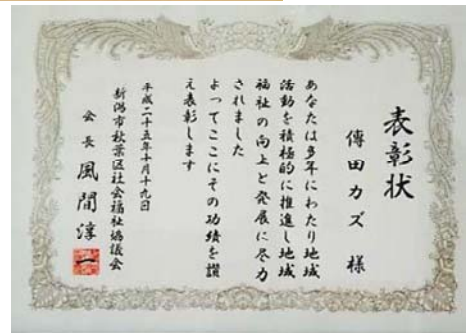 表彰状
傳田カズ 様
あなたは多年にわたり地域
活動を積極的に推進し地域
福祉の向上と発展に尽力
されました
よってここにその功績を讃
え表彰します
平成二十五年十月十九日
新潟市秋葉区社会福祉協議会
会長 風間淳一